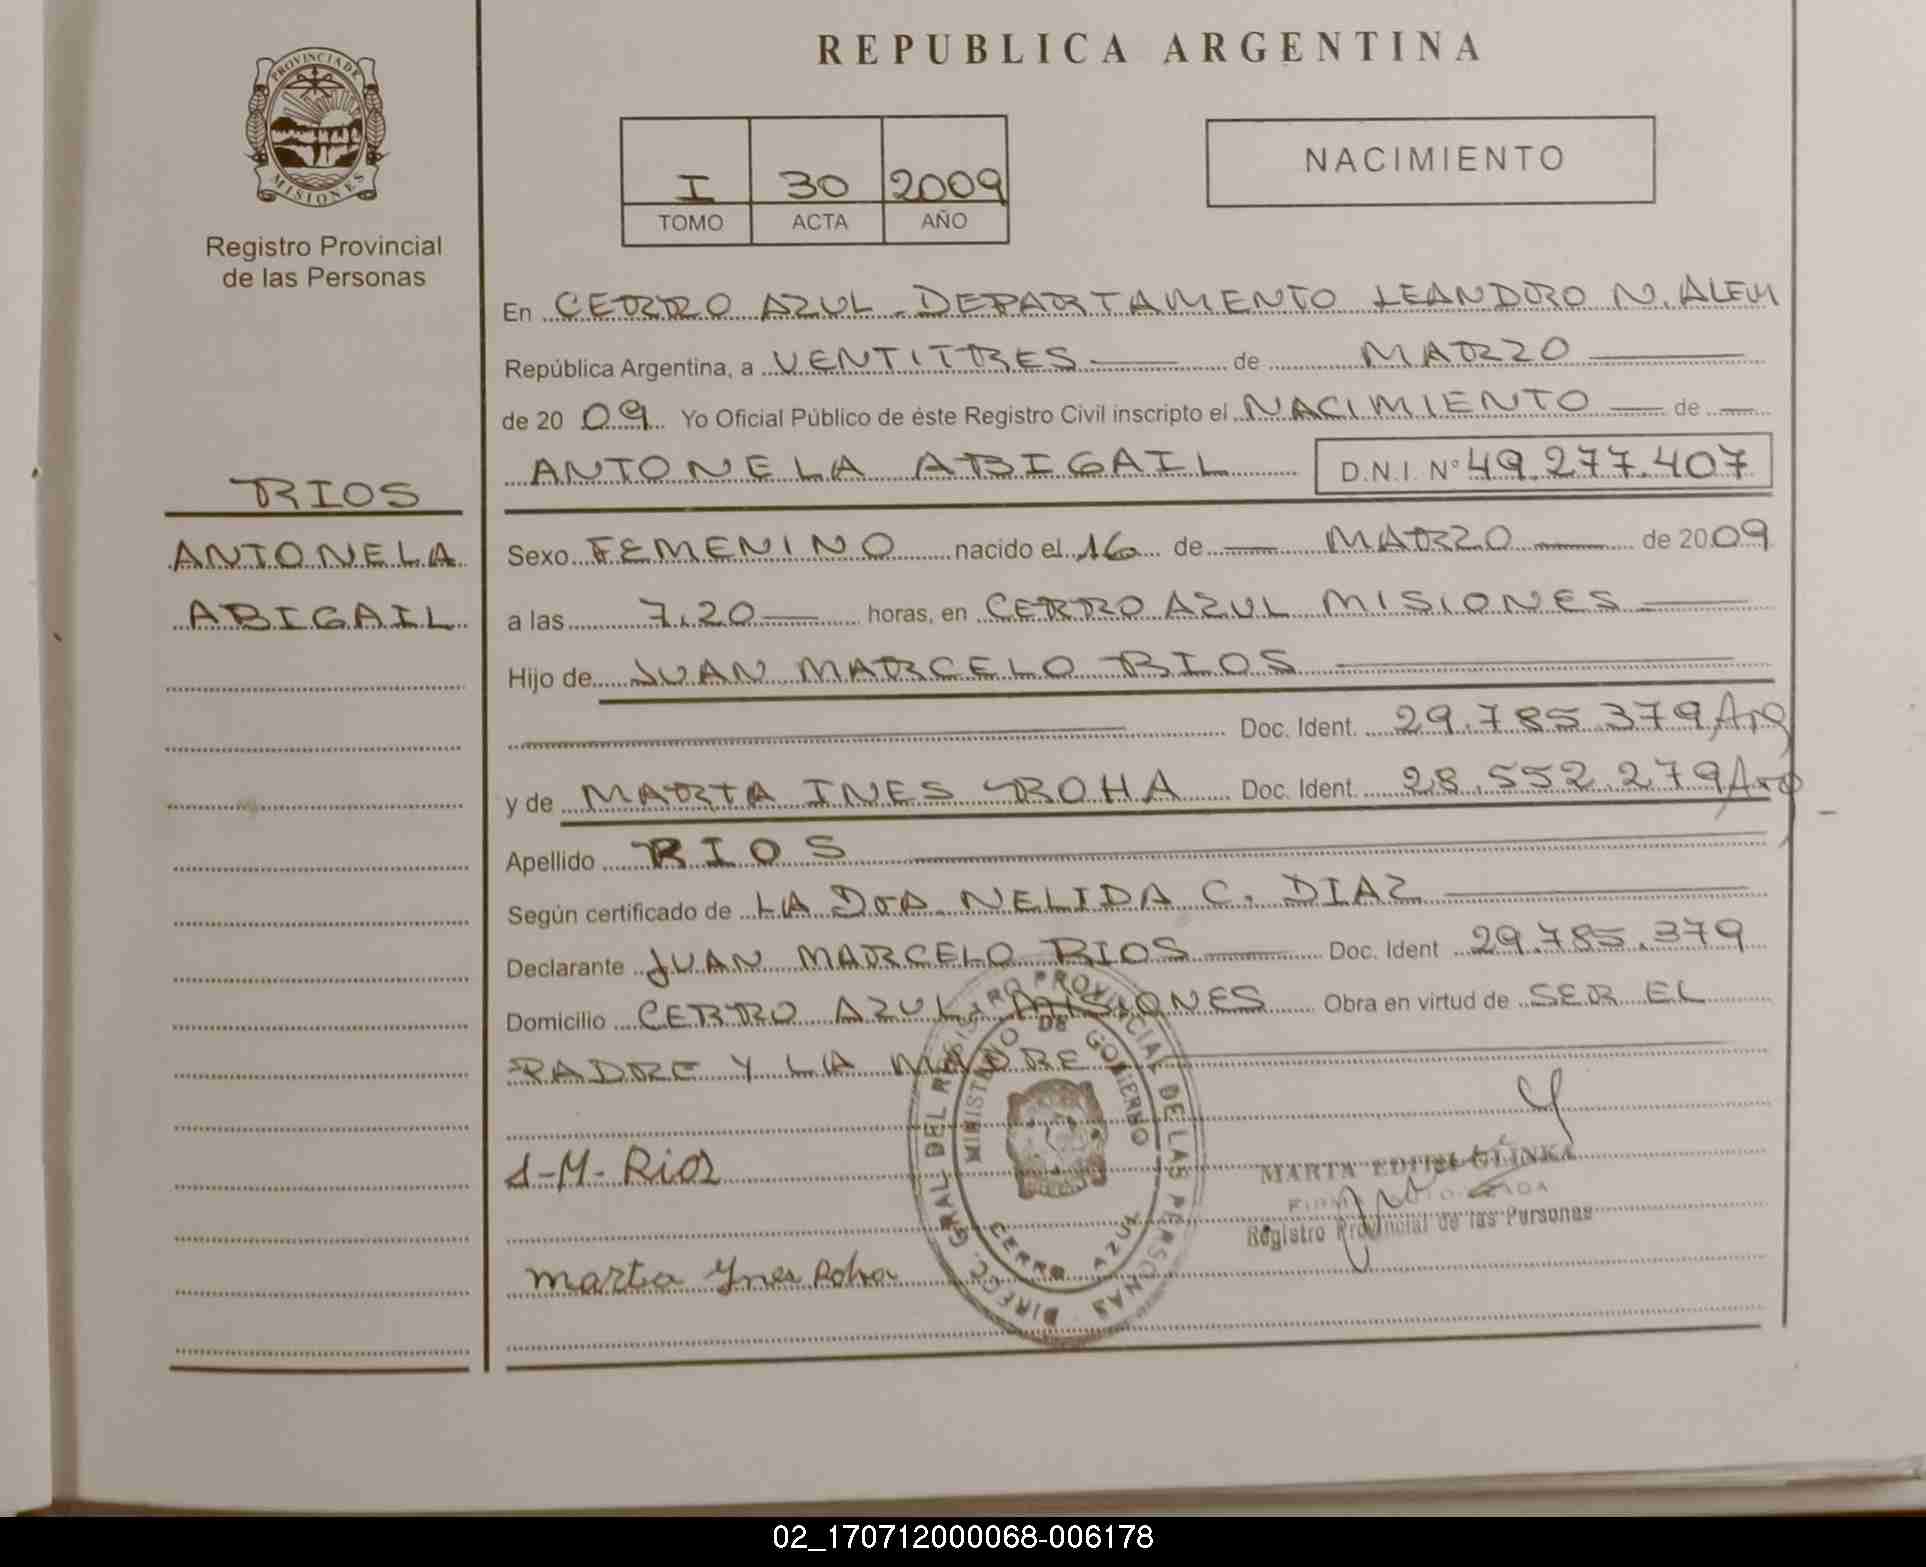 REPUBLICA ARGENTINA
PROVINCIA DE
MISIONES
Registro Provincial
de las Personas
I 30 2009
TOMO ACTA AÑO
NACIMIENTO
En CERRO AZUL - DEPARTAMENTO LEANDRO N. ALEM
República Argentina, a VENTITRES de MARZO
de 20 09 Yo Oficial Público de éste Registro Civil inscripto el NACIMIENTO de
ANTONELA ABIGAIL D.N.I. N° 49.277.407
RIOS
ANTONELA
ABIGAIL
Sexo FEMENINO nacido el 16 de MARZO de 2009
a las 7.20 horas, en CERRO AZUL MISIONES
Hijo de JUAN MARCELO RIOS
Doc. Ident. 29.785.379 Arg
y de MARTA INES ROHA Doc. Ident. 28.552.279 Arg
Apellido RIOS
Según certificado de LA Dra NELIDA C. DIAZ
Declarante JUAN MARCELO RIOS Doc. Ident 29.785.379
Domicilio CERRO AZUL, MISIONES Obra en virtud de SER EL
PADRE Y LA MADRE
J-M-Rios
marta Ynes Roha
DIRECC. GRAL DEL REGISTRO PROVINCIAL DE LAS PERSONAS
MINISTERIO DE GOBIERNO
CERRO AZUL
MARTA EDITH GLINKA
Registro Provincial de las Personas
02_170712000068-006178